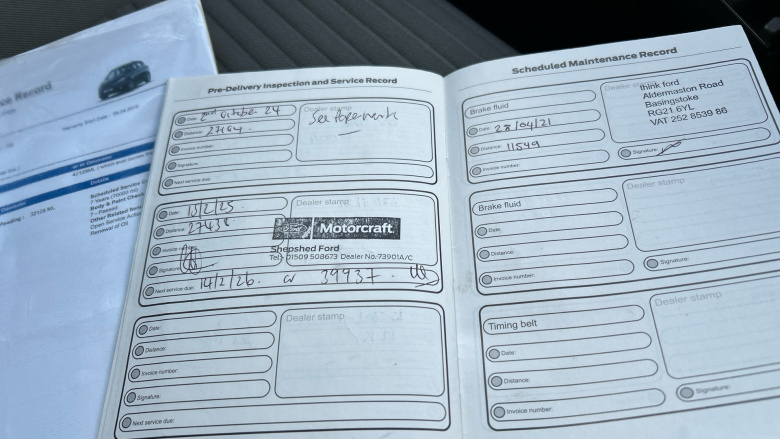 Pre-Delivery Inspection and Service Record
Date: 2nd October 24
Distance: 27164
Invoice number:
Signature:
Next service due:
Dealer stamp
See Paperwork
Date: 15/2/25
Distance: 27438
Invoice
Signature
Next service due: 14/2/26 or 39937
Dealer stamp
Ford Motorcraft
Shepshed Ford
Tel: 01509 508673 Dealer No:73901A/C
Date:
Distance:
Invoice number:
Signature:
Next service due:
Dealer stamp
Scheduled Maintenance Record
Brake fluid
Date: 28/04/21
Distance: 11549
Invoice number:
Dealer
think ford
Aldermaston Road
Basingstoke
RG21 6YL
VAT 252 8539 86
Signature:
Brake fluid
Date:
Distance:
Invoice number:
Dealer stamp
Signature:
Timing belt
Date:
Distance:
Invoice number:
Dealer stamp
Signature:
Record
Details
Scheduled Service
Body & Paint Check
7 - Passed
Other Related
Removal of Oil